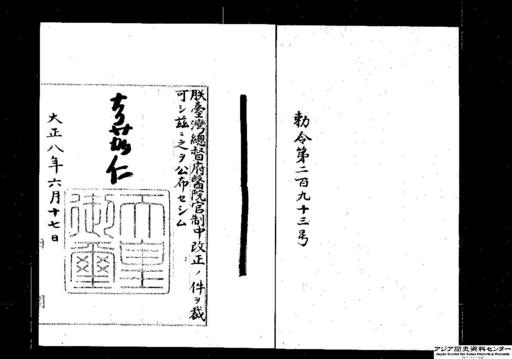 勅令第二百九十三号
朕臺灣總督府醫院官制中改正ノ件ヲ裁
可シ茲ニ之ヲ公布セシム
嘉仁
天皇
御璽
大正八年六月十七日
アジア歴史資料センター
Japan Center for Asian Historical Records